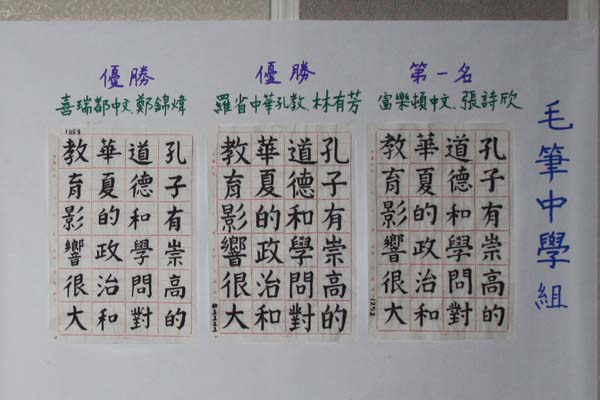 毛筆中學組
第一名
富樂頓中文.張詩欣
孔子有崇高的
道德和學問對
華夏的政治和
教育影響很大
1252
優勝
羅省中華孔教.林有芳
孔子有崇高的
道德和學問對
華夏的政治和
教育影響很大
優勝
喜瑞都中文.鄭錦煒
1058
孔子有崇高的
道德和學問對
華夏的政治和
教育影響很大